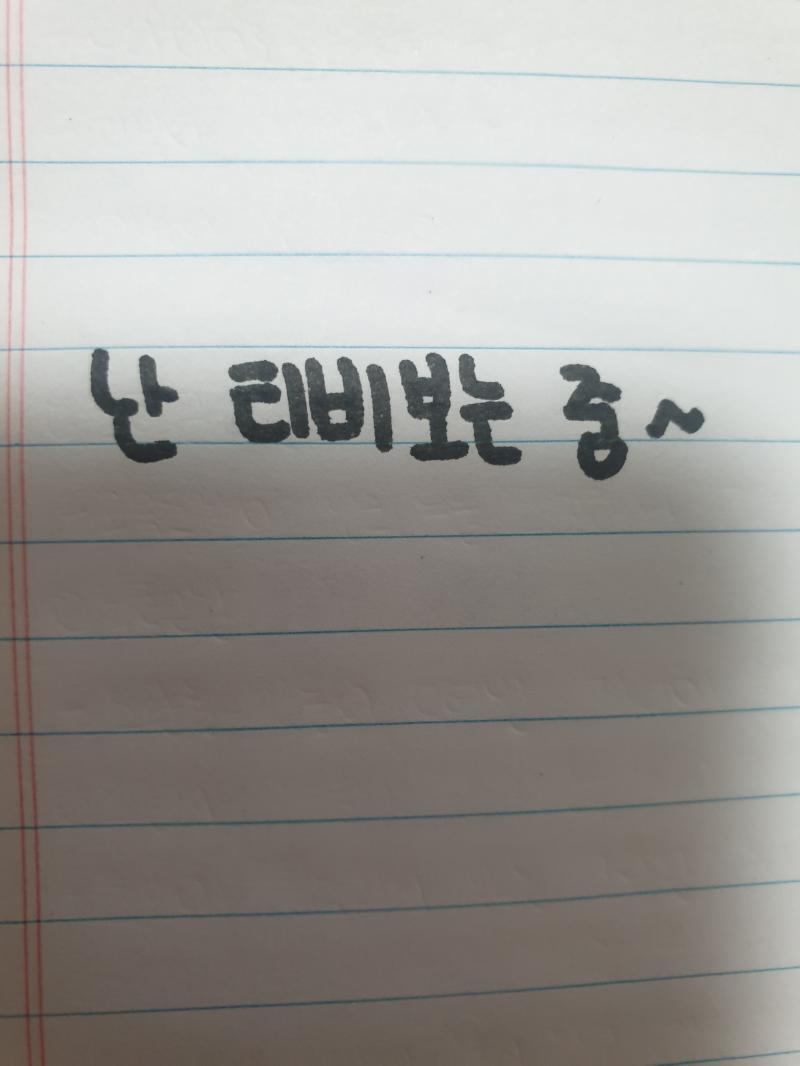 난 티비보는 중~